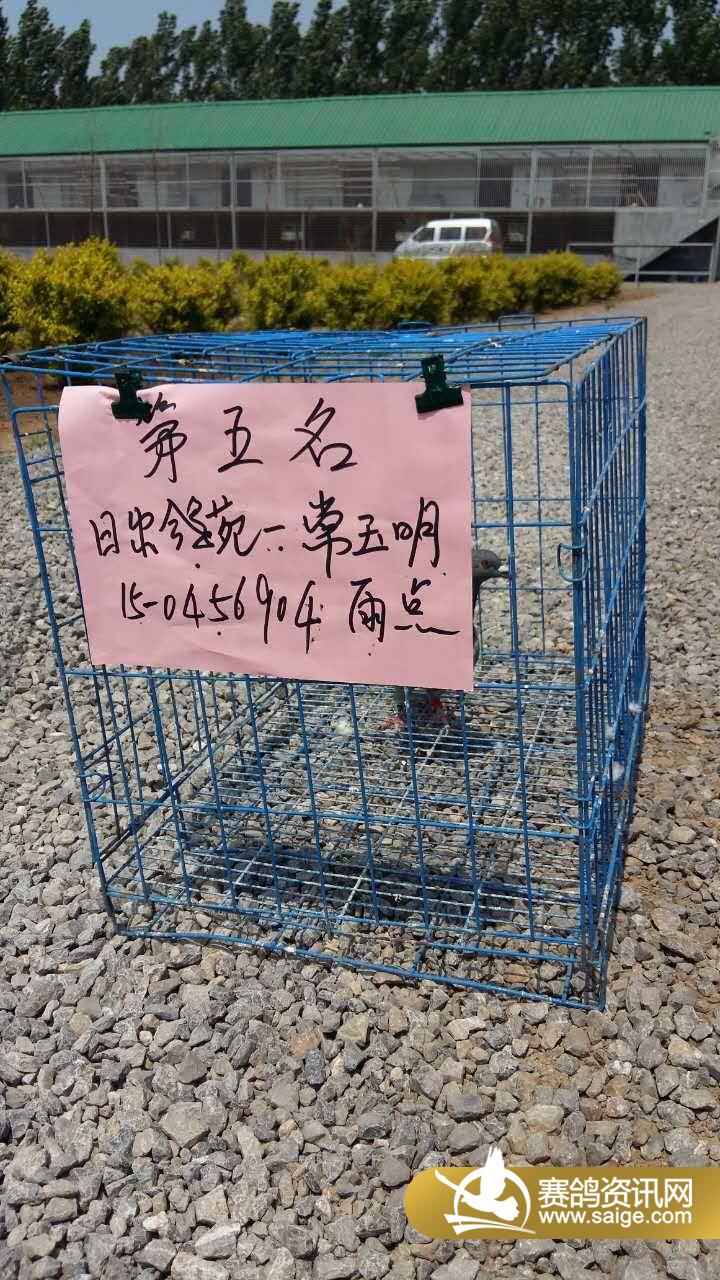 第五名
日出鸽苑—常玉明
15-0456904 雨点
赛鸽资讯网
www.saige.com